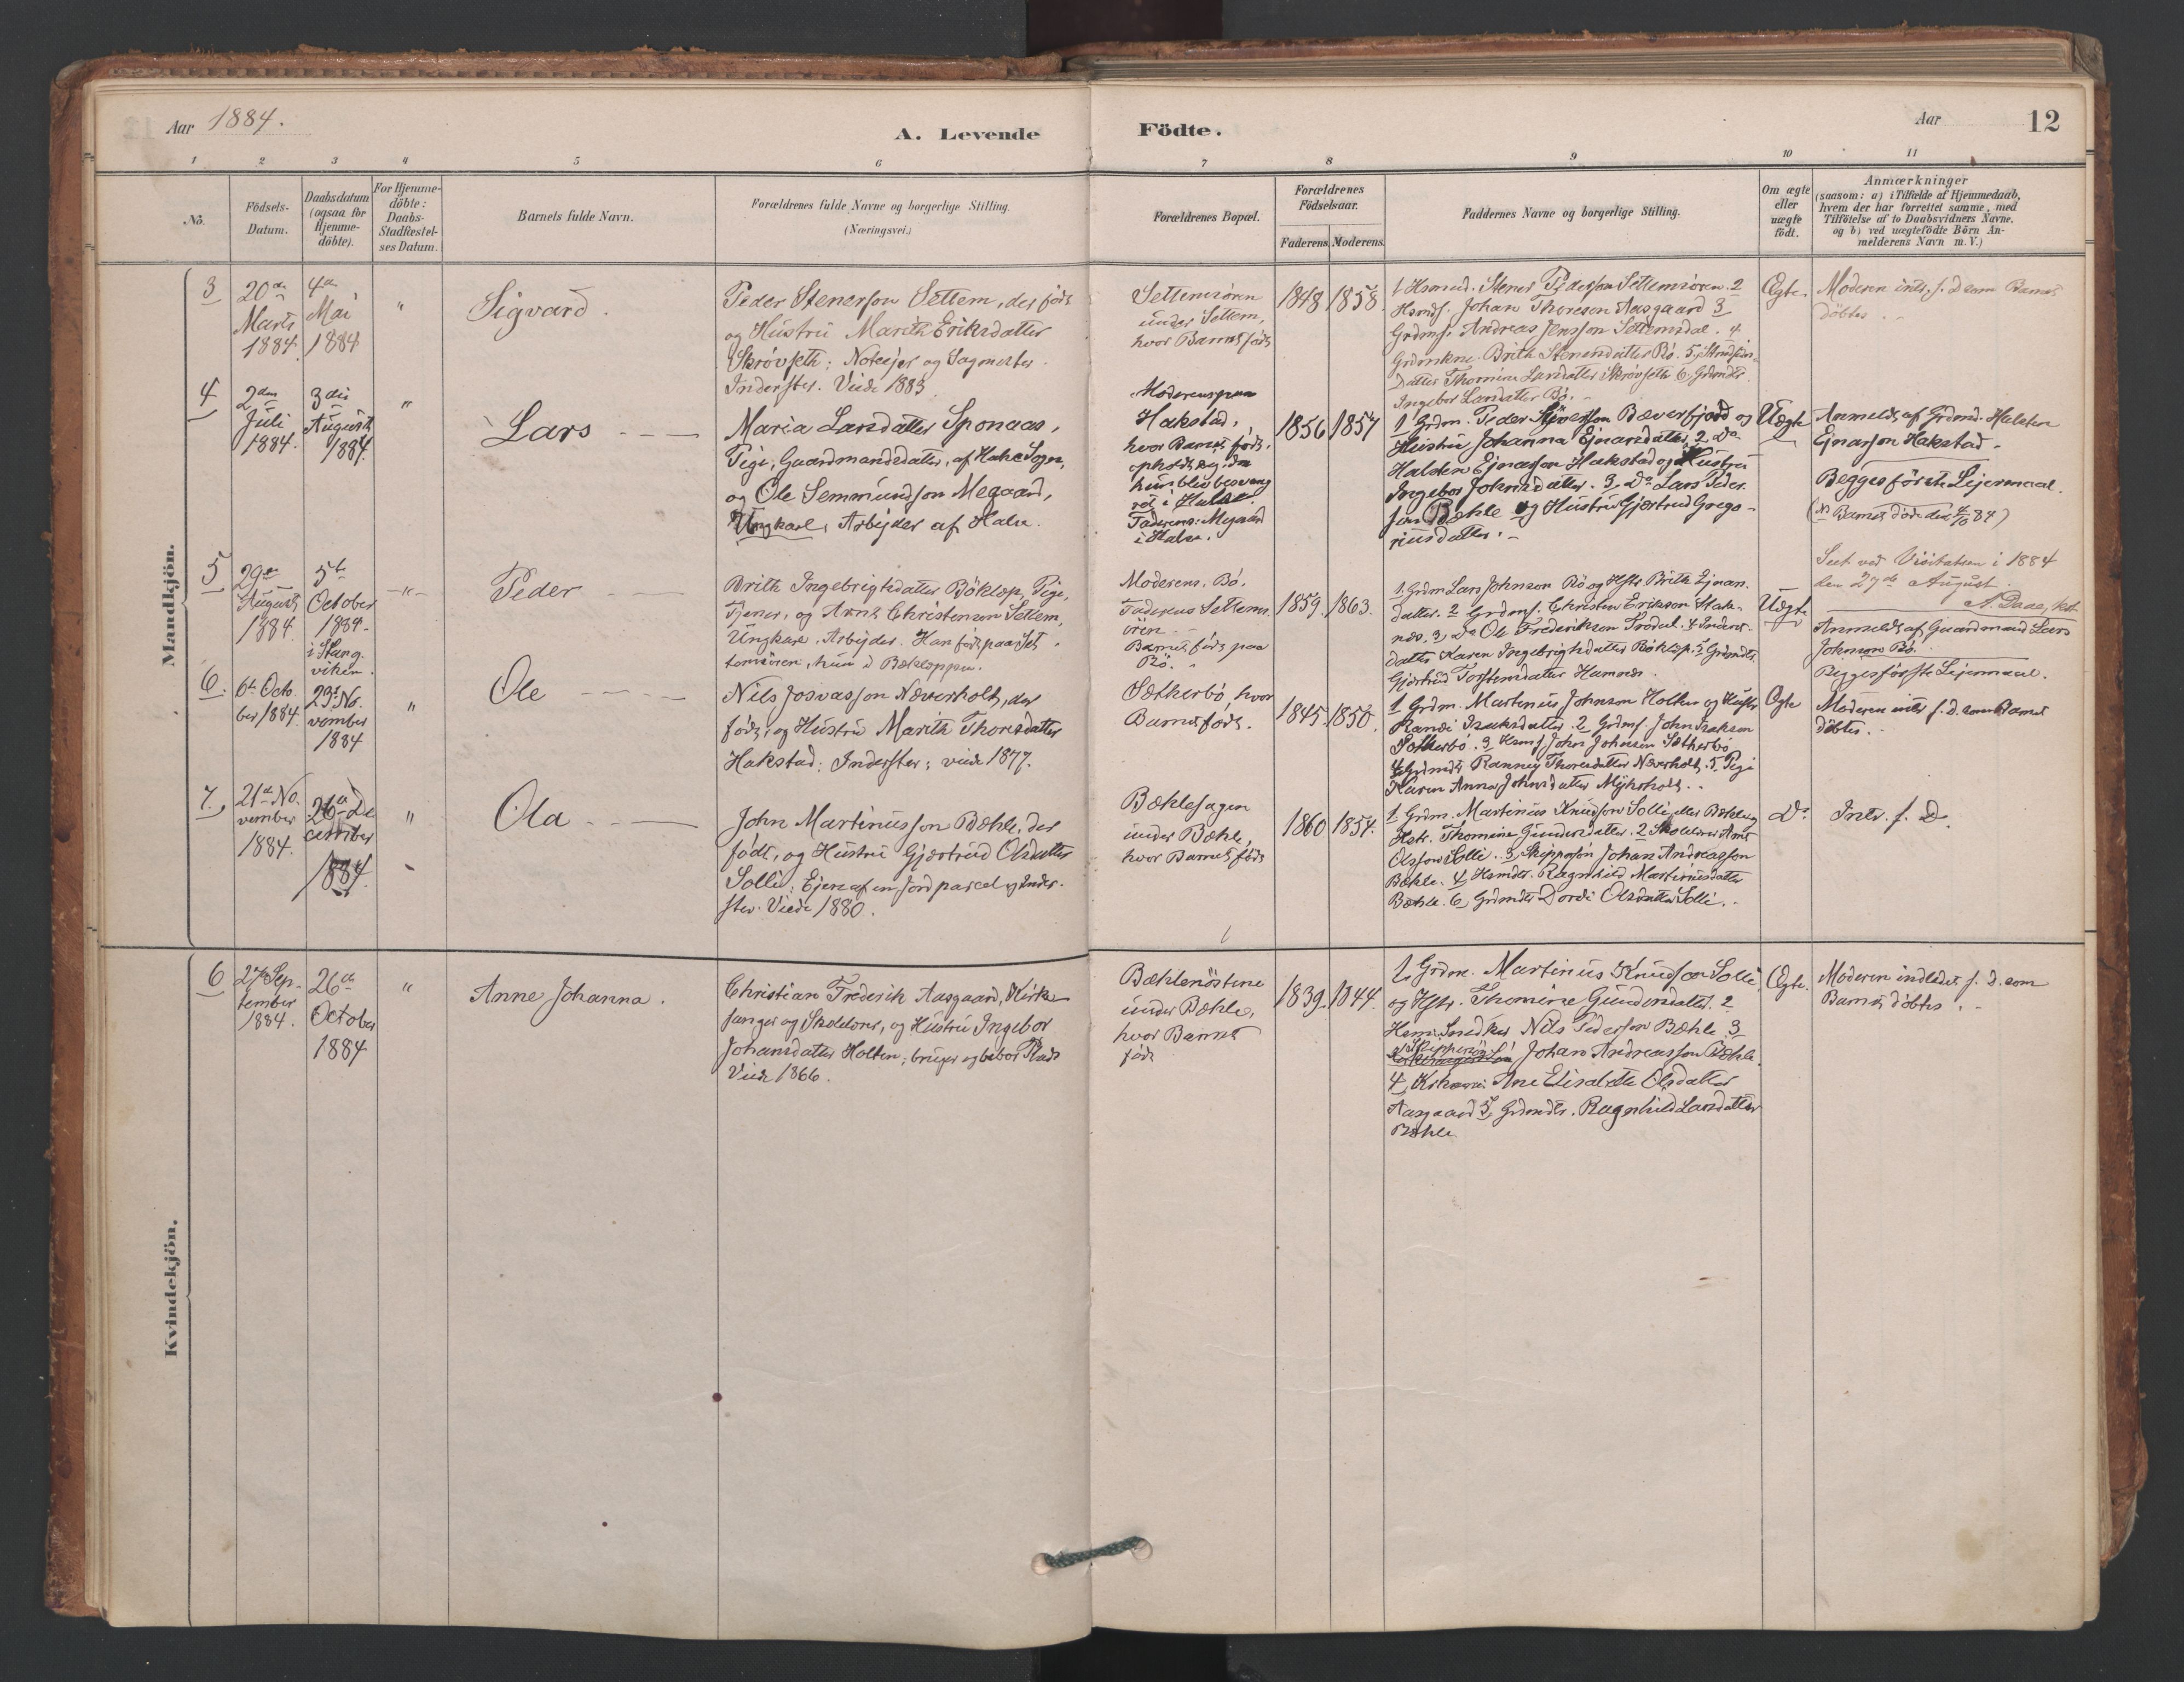 Aar 1884.
A. Levende Födte.
Aar
12
1 2 3 4 5 6 7 8 9 10 11
No.
Födsels-
Datum.
Daabsdatum
(ogsaa for
Hjemme-
döbte).
For Hjemme-
döbte:
Daabs-
Stadfæstel-
ses Datum.
Barnets fulde Navn.
Forældrenes fulde Navne og borgerlige Stilling.
(Næringsvei.)
Forældrenes Bopæl.
Forældrenes
Födselsaar.
Faderens. Moderens.
Faddernes Navne og borgerlige Stilling.
Om ægte
eller
uægte
födt.
Anmærkninger
(saasom: a) i Tilfælde af Hjemmedaab,
hvem der har forrettet samme, med
Tilföielse af to Daabsvidners Navne,
og b) ved uægtefödte Börn An-
melderens Navn m. V.)
Mandkjön.
3
20de
Marts
1884.
4de
Mai
1884
"
Sigvard.
Peder Stenerson Settem, der födt
og Hustru Marith Eriksdatter
Skrövseth; Noteejer og Sagmester
Inderster. Viede 1883
Settemsören
under Settem,
hvor Barnet födt
1848 1858.
1 Hsmnd. Stener Pederson Settemsören. 2
Hsmds. Johan Thoreson Aasgaard 3
Grdmds. Andreas Jensson Settemsdal. 4
Grdmkne. Brith Stenersdatter Bö. 5,
Datter Thomine Larsdatter Skrövseth 6, Grdmdtr.
Ingebor Larsdatter Bö.
Ægte.
Moderen intr. f. D som Barnet
döbtes.
4
2den
Juli
1884.
3die
August
1884.
"
Lars
Maria Larsdatter Sponaas,
Pige, Gaardmandsdatter, af Halse Sogn,
og Ole Semmundson Megaard,
Ungkarl, Arbejder af Halse.
Moderens paa
Hakstad,
hvor Barnet födt,
opholdt sig, da
hun blev besvang
ret i Halse.
Faderens: Megaard
i Halse.
1856 1857
1 Grdm. Peder Stenerson Bæverfjord og
Hustru Johanna Ejnarsdatter, 2 Do
Halsten Ejnarson Hakstad og Hustru
Ingebor Johnsdatter. 3, Do Lars Peder
son Bæhle og Hustru Gjertrud Grego-
riusdatter.
Uægte
Anmeldt af Grdmd. Halsten
Ejnarson Hakstad.
Begges förste Lejermaal.
(NB Barnet döde den 4/10 84)
5
29de
August
1884.
5te
October
1884.
i Stang-
viken.
"
Peder
Brith Ingebrigtsdatter Böklöp, Pige,
Tjener, og Arnt Christenson Settem,
Ungkarl, Arbejder. Han födt paa Set-
temsören, hun i Bækloppen.
Moderens, Bö,
Faderens Settems-
ören
Barnet födt paa
Bö.
1859. 1863.
1. Grdm Lars Johnson Bö og Hstr Brith Ejnars
datter. 2 Grdms. Christen Erikson Hak-
næs, 3, Do Ole Frederikson Brödal. 4
datter Karen Ingebrigtsdatter Böklöp. 5 Grdmdtr.
Gjertrud Torstensdatter Hamnes.
Uægte
Seet ved Visitatsen i 1884
den 27de August.
A. Daae, kst.
Anmeldt af Gaardmand Lars
Johnson Bö.
Begges förste Lejermaal.
6.
6te Octo-
ber 1884.
23de No-
vember
1884
"
Ole
Nils Josvasson Næverholt, der
födt, og Hustru Marith Thoresdatter
Hakstad; Inderster; viede 1877.
Sætherbö, hvor
Barnet födt.
1845. 1850.
1 Grdm. Martinus Johnson Holten og Hustr
Randi Isaksdatter. 2 Grdms. John Isakson
Sætherbö. 3 Hsms John Johnson Sætherbö
4 Grdmdtr Ranney Thoresdatter Næverholt. 5. Pige
Karen Anna Johnsdatter Myhrholt.
Ægte
Moderen intr f. d. som Barnet
döbtes.
7.
21de No-
vember
1884.
26de De
cember
1884.
"
Ola
John Martinusson Bæhle, der
födt, og Hustru Gjertrud Olsdatter
Solli; Ejere af en Jordparcel og Inder-
ster. Viede 1880.
Bæhlesagen
under Bæhle,
hvor Barnet födt
1860 1854.
1 Grdm. Martinus Knudson Solli eller Bæhle og
Hstr. Thomine Gundersdatter. 2 Skolelærer Arnt
Olsson Solli. 3, Skippersön Johan Andreasson
Bæhle. 4, Hsmdtr. Ragnhild Martinusdatter
Bæhle. 6, Grdmdtr Dordi Olsdatter Solli.
Do
Intr. f. D.
Kvindekjön.
6
27de Sep-
tember
1884.
26de
October
1884
"
Anne Johanna.
Christian Frederik Aasgaard, Kirke-
sanger og Skolelærer, og Hustru Ingebor
Johansdatter Holten; bruger og bebor Plads
Viede 1866.
Bæhlenöstene
under Bæhle,
hvor Barnet
födt
1839. 1844.
1, Grdm. Martinus Knudson Solli
og Hstr. Thomine Gundersdatter. 2
Hsm. Snedker Nils Pederson Bæhle 3
Skippersön Johan Andreasson Bæhle.
4, Ane Elisabeth Olsdatter
Aasgaard 5, Grdmdtr. Ragnhild Larsdatter
Bæhle
Ægte.
Moderen indledet f. d. som
Barnet döbtes.